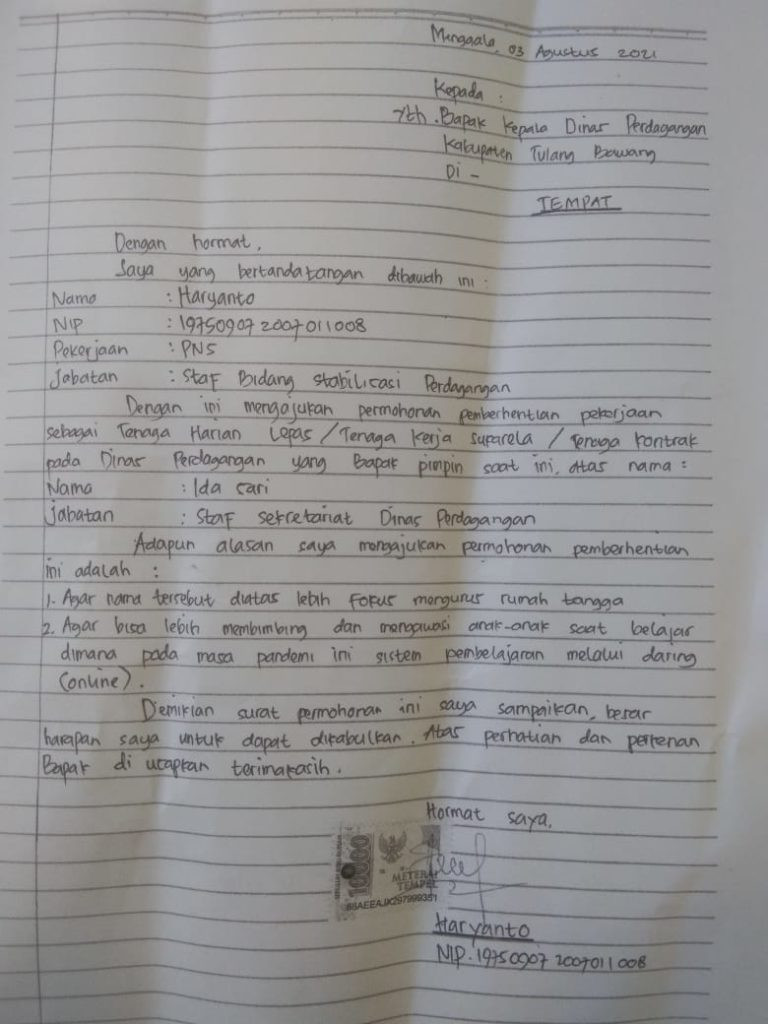 Menggala, 03 Agustus 2021
Kepada :
Yth. Bapak Kepala Dinas Perdagangan
Kabupaten Tulang Bawang
Di -
TEMPAT
Dengan hormat,
Saya yang bertandatangan dibawah ini :
Nama : Haryanto
NIP : 19750907 2007011008
Pekerjaan : PNS
Jabatan : Staf Bidang stabilisasi Perdagangan
Dengan ini mengajukan permohonan pemberhentian pekerjaan
sebagai Tenaga Harian Lepas / Tenaga Kerja sukarela / Tenaga kontrak
pada Dinas Perdagangan yang Bapak pimpin saat ini, Atas nama :
Nama : Ida sari
Jabatan : Staf sekretariat Dinas Perdagangan
Adapun alasan saya mengajukan permohonan pemberhentian
ini adalah :
1. Agar nama tersebut diatas lebih fokus mengurus rumah tangga
2. Agar bisa lebih membimbing dan mengawasi anak-anak saat belajar
dimana pada masa pandemi ini sistem pembelajaran melalui daring
(online).
Demikian surat permohonan ini saya sampaikan, besar
harapan saya untuk dapat dikabulkan. Atas perhatian dan perkenan
Bapak di ucapkan terimakasih.
Hormat saya,
10000
METERAI
TEMPEL
Haryanto
NIP. 19750907 2007011008